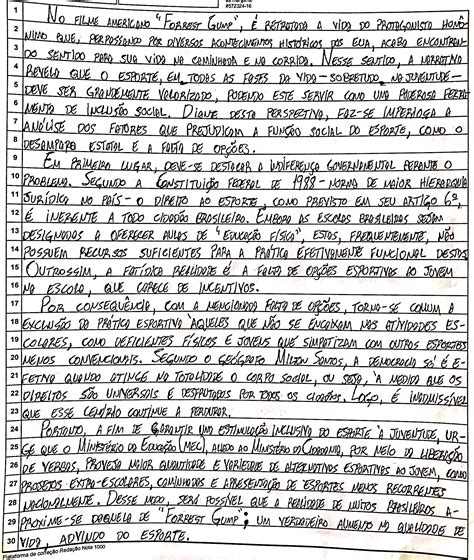 #572324-16
1 No filme americano "Forrest Gump", é retratada a vida do protagonista homô
2 nimo que, perpassando por diversos acontecimentos históricos dos EUA, acaba encontran-
3 do sentido para sua vida na caminhada e na corrida. Nesse sentido, a narrativa
4 revela que o esporte, em todas as fases da vida - sobretudo, na juventude -
5 deve ser grandemente valorizado, podendo este servir como uma poderosa ferra
6 menta de inclusão social. Diante desta perspectiva, faz-se imperiosa a
7 análise dos fatores que prejudicam a função social do esporte, como o
8 desamparo estatal e a falta de opções.
9 Em primeiro lugar, deve-se destacar a indiferença governamental perante o
10 problema. Segundo a Constituição Federal de 1988 - norma de maior hierarquia
11 jurídica no país - o direito ao esporte, como previsto em seu artigo 6º,
12 é inerente a todo cidadão brasileiro. Embora as escolas brasileiras sejam
13 designadas a oferecer aulas de "Educação Física", estas, frequentemente, não
14 possuem recursos suficientes para a prática efetivamente funcional destas.
15 Outrossim, a fatídica realidade é a falta de opções esportivas ao jovem
16 na escola, que carece de incentivos.
17 Por consequência, com a mencionada falta de opções, torna-se comum a
18 exclusão da prática esportiva àqueles que não se encaixam nas atividades es-
19 colares, como deficientes físicos e jovens que simpatizam com outros esportes
20 menos convencionais. Segundo o geógrafo Milton Santos, a democracia só é e-
21 fetiva quando atinge na totalidade o corpo social, ou seja, à medida que os
22 direitos são universais e desfrutados por todos os cidadãos. Logo, é inadmissível
23 que esse cenário continue a perdurar.
24 Portanto, a fim de garantir uma estimulação inclusiva do esporte à juventude, ur-
25 ge que o Ministério da Educação (MEC), aliado ao Ministério da Cidadania, por meio da liberação
26 de verbas, proveja maior quantidade e variedade de alternativas esportivas ao jovem, como
27 projetos extra-escolares, caminhadas e apresentação de esportes menos recorrentes
28 nacionalmente. Desse modo, será possível que a realidade de muitos brasileiros a-
29 proxime-se daquela de "Forrest Gump"; um verdadeiro aumento na qualidade de
30 vida, advindo do esporte.
Plataforma de correção Redação Nota 1000